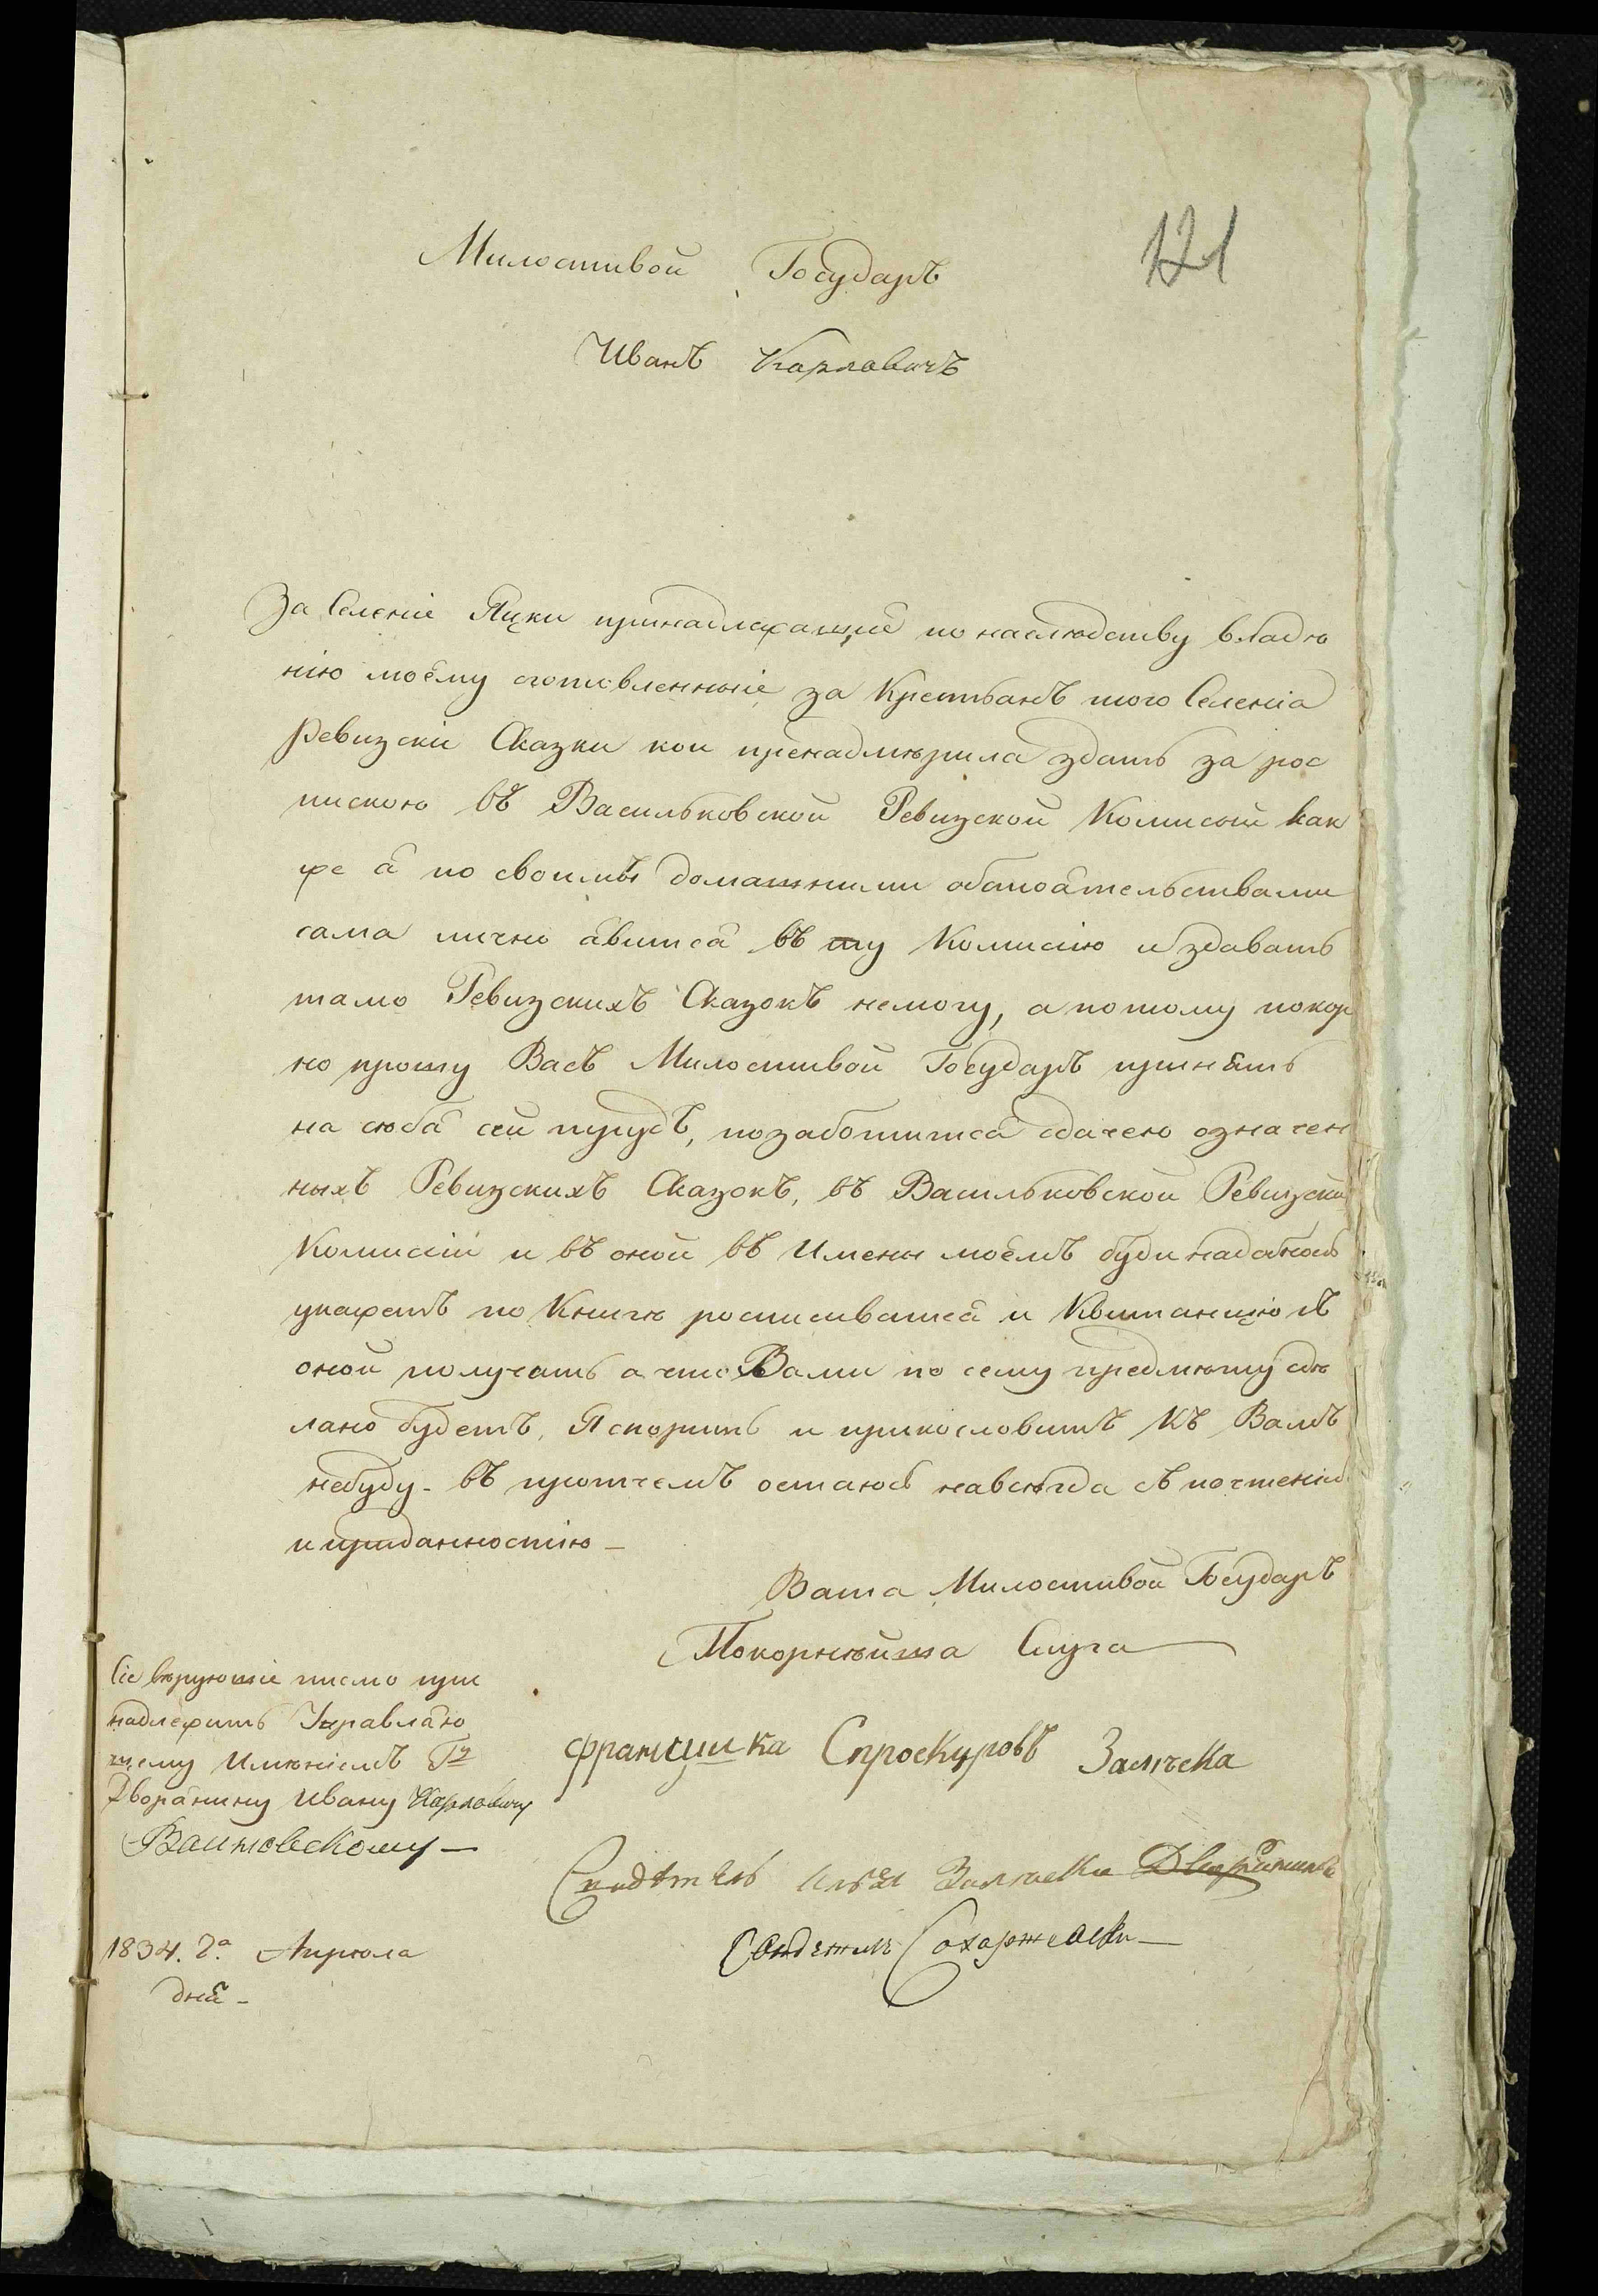 121
Милостивой Государь
Иванъ Карловичъ
За Селеніе Яцки принадлежащие по наслюдству владю
нію моему зготовленныіе за Крестьанъ того Селеніа
Ревизскіи Сказки кои пренадмюрила здать за рос
пискою въ Васильковской Ревизской Комисыи как
же я по своимъ домашними обстоятельствами
сама лично явится въ ту Комисію и здавать
тамо Ревизскихъ Сказокъ немогу, а потому покор
но прошу Васъ Милостивой Государь принять
на сюбя сей трудъ, позаботится сдачею означен
ныхъ Ревизскихъ Сказокъ, въ Васильковской Ревизской
Комиссіи и въ оной въ Имены моемъ буди надобность
укажетъ по Книгю росписиватся и Квитанцію съ
оной получать а что Вами по сему предмюту сдю
лано будетъ, Я спорить и прикословить Къ Вамъ
небуду - въ протчемъ остаюсь навсягда съ почтениемъ
и приданностію -
Ваша Милостивой Государь
Покорнюйша Слуга
Францишка Спроскуровъ Залюска
Сіе вюрующіе писмо при
надлежитъ Управляю
щему Имюніемъ Гу
Дворянину Ивану Карловичу
Свидютель Илья Залюски Дворянинъ
Свидетель
1834. 2а Апрюла
дня -